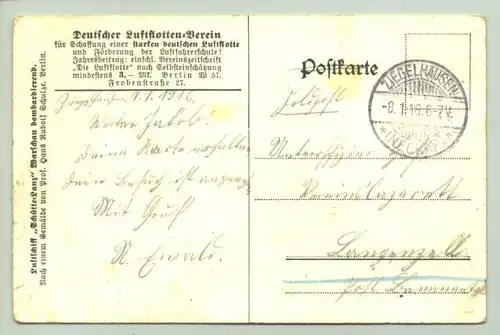 Deutscher Luftflotten-Verein
für Schaffung einer starken deutschen Luftflotte
und Förderung der Luftfahrerschule!
Jahresbeitrag: einschl. Vereinszeitschrift
"Die Luftflotte" nach Selbsteinschätzung
mindestens 3,— Mk. Berlin W 57,
Frobenstraße 27.
Luftschiff "Schütte-Lanz" Warschau bombardierend.
Nach einem Gemälde von Prof. Hans Rudolf Schulze. Berlin.
Postkarte
ZIEGELHAUSEN
-8.1.16.6-7V.
Feldpost
1916.
Werter Jakob!
Deine Karte erhalten
dein Besuch ist
Mit Gruß
Ewald.
Unteroffizier
Vereins Lazarett
Langenzell
Post